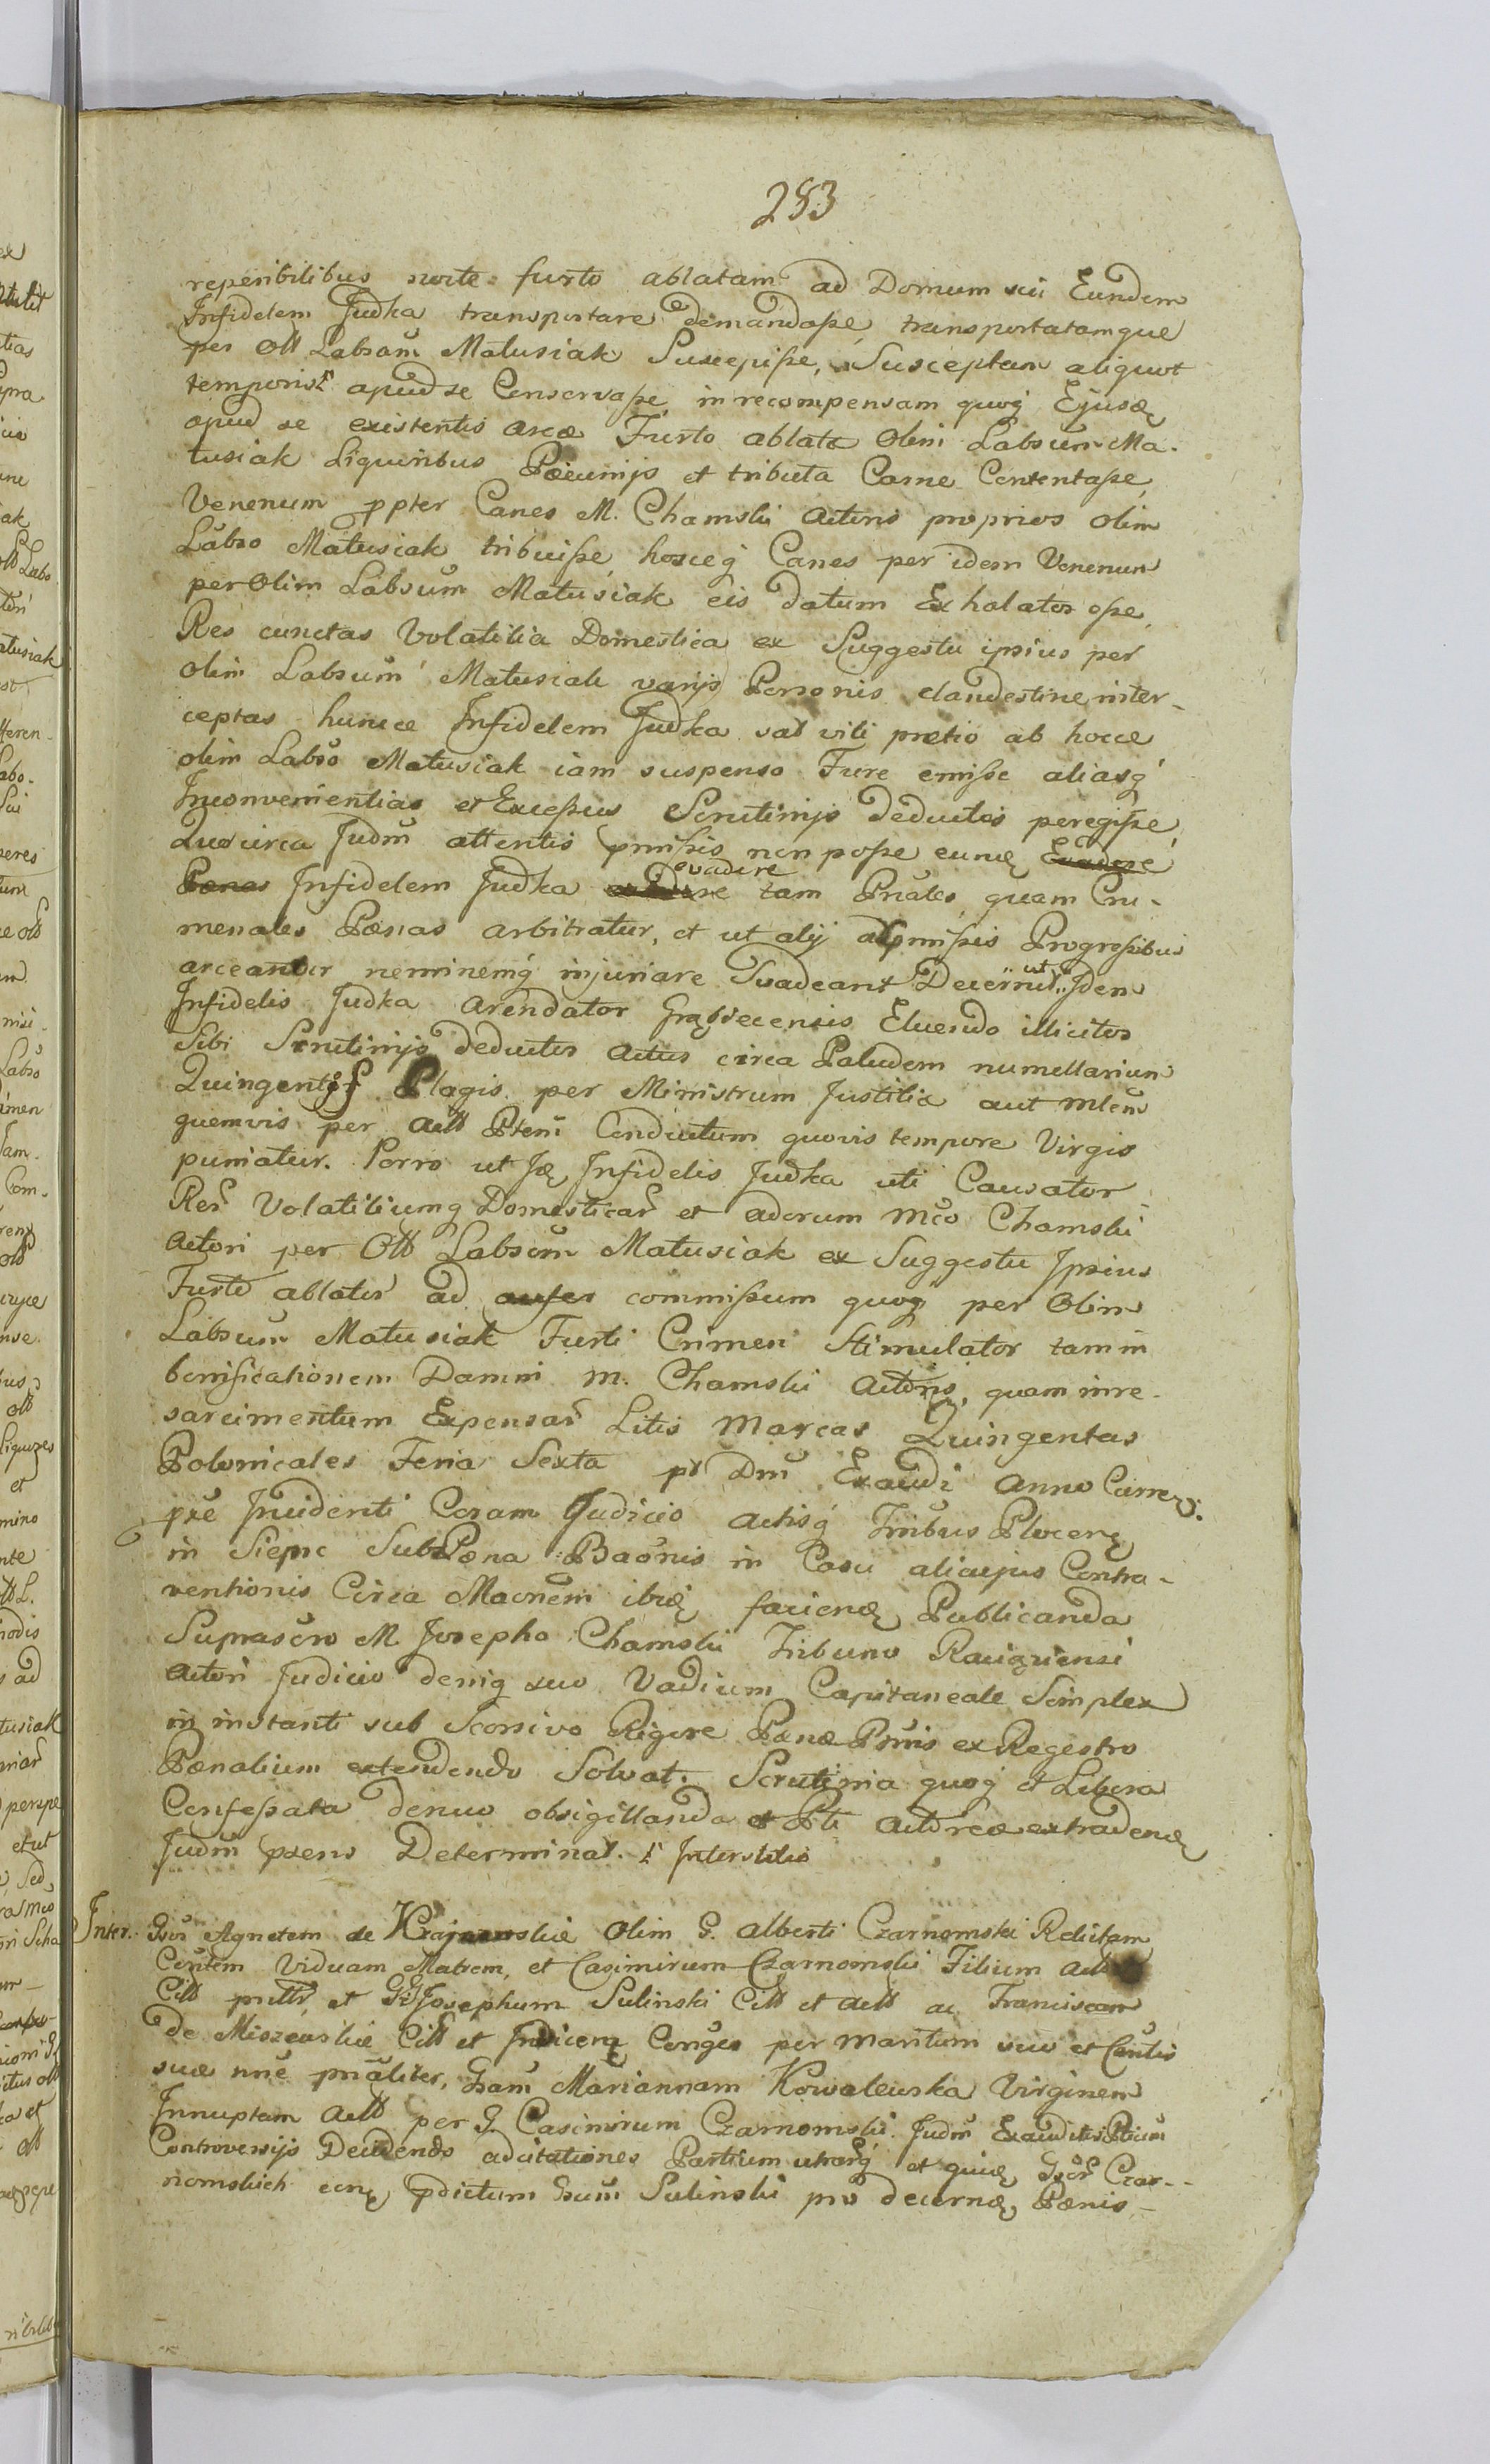 283
reperibilibus nocte furto ablatam ad Domum sui Eundem
Infidelem Judka transportare demandasse, transportatamque
per Olb Labsam Matusiak Suscepisse, Susceptam aliquot
temporis apud se Conservasse, in recompensam quoq Ejusdę
apud se existentis arcæ Furto ablatæ Olim Labsum Ma-
tusiak Liquoribus Pecunijs et tributa Carne Contentasse,
Venenum ppter Canes M. Chamski actoris proprios olim
Labso Matusiak tribuisse, hosceq Canes per idem Venenum
per Olim Labsum Matusiak eis datum Exhalatos esse,
Res cunctas Volatilia Domestica ex Suggestu ipsius per
Olim Labsum Matusiak varijs Personis clandestine inter-
ceptas hunce Infidelem Judka sat vili pretio ab hocce
olim Labso Matusiak iam suspenso Fure emisse aliasq
Inconvenientias et Excessus Scrutinijs deductos peregisse,
Quocirca Judm attentis pmissis non posse eundę Evadere
Pænas Infidelem Judka evadere tam Pnales, quam Cri-
menales Pænas arbitratur, et ut alij a pmissis Progressibus
arceantur neminemq injuriare Suadeant Decernit, ut Idem
Infidelis Judka Arendator Grąbiecensis Eluendo illicitos
Sibi Scrutinijs deductos actus circa Paludem numellarium
Quingentis Plagis per Ministrum Justitiæ aut mlem
quemvis per Actt Ptem Conductum quovis tempore Virgis
puniatur. Porro ut Idę Infidelis Judka uti Causator
Rer Volatiliumq Domesticar et aderum Mco Chamski
Actori per Olb Labsum Matusiak ex Suggestu Ipsius
Furto ablator ad commissum quoq per Olim
Labsum Matusiak Furti Crimen Stimulator tam in
bonificationem Damni M. Chamski Actoris, quam in re-
sarcimentum Expensar Litis Marcas Quingentas
Polonicales Feria Sexta pt Dm Exaudi Anno Curren:
pxe Incidenti Coram Judicio Actisq Tribus Plocen
in Sierpc Sub Pæna Baonis in Casu alicujus Contra-
ventionis Circa Maonem ibidę faciendę Publicanda
Suprascro M. Josepho Chamski Tribuno Raciąziensi
Actori Judicio deniq suo Vadium Capitaneale Simplex
in instanti sub Scorsivo Rigore Pænæ Pmis ex Regestro
Pænalium extendendo Solvat. Scrutinia quoq et Libera
Confessata denuo obsigillanda et Pti Actoreæ extradendę
Judm præns Determinat. Interstitio
Inter. Gsos Agnetem de Krajewskie Olim G. Alberti Czarnomski Relictam
Contem Viduam Matrem, et Casimirum Czarnomski Filium Actt
Citt et Josephum Sulinski Citt et Actt ac Franciscam
de Miszewskie Citt et Conges per maritum suo et Contis
suæ nne pnaliter, Gsam Mariannam Kowalewska Virginem
Innuptam Actt per G. Casimirum Czarnomski. Judm Exauditis Ptium
Controversijs Decidendo adcitationes Partium utrarq et quidę Gsor Czar-
nomskich pdictum Gsum Sulinski pro decernę Pænis-